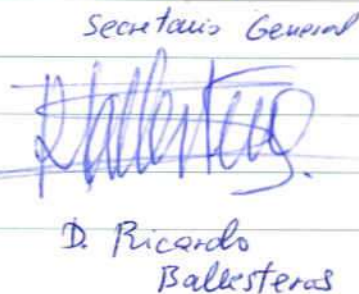 Secretario General
RBallesteros.
D. Ricardo
Ballesteros